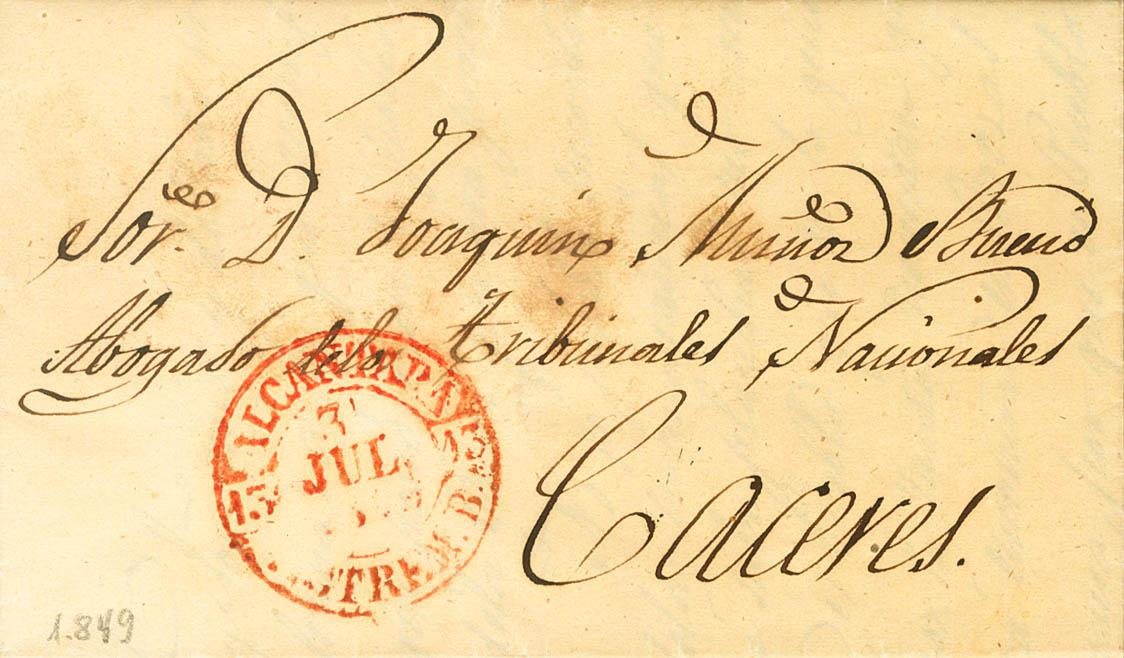 Sor. D. Joaquin Muñoz Bueno
Abogado de los Tribunales Nacionales
Caceres.
ALCANTARA
13 13
3
JUL
ESTREM. B.
1.849